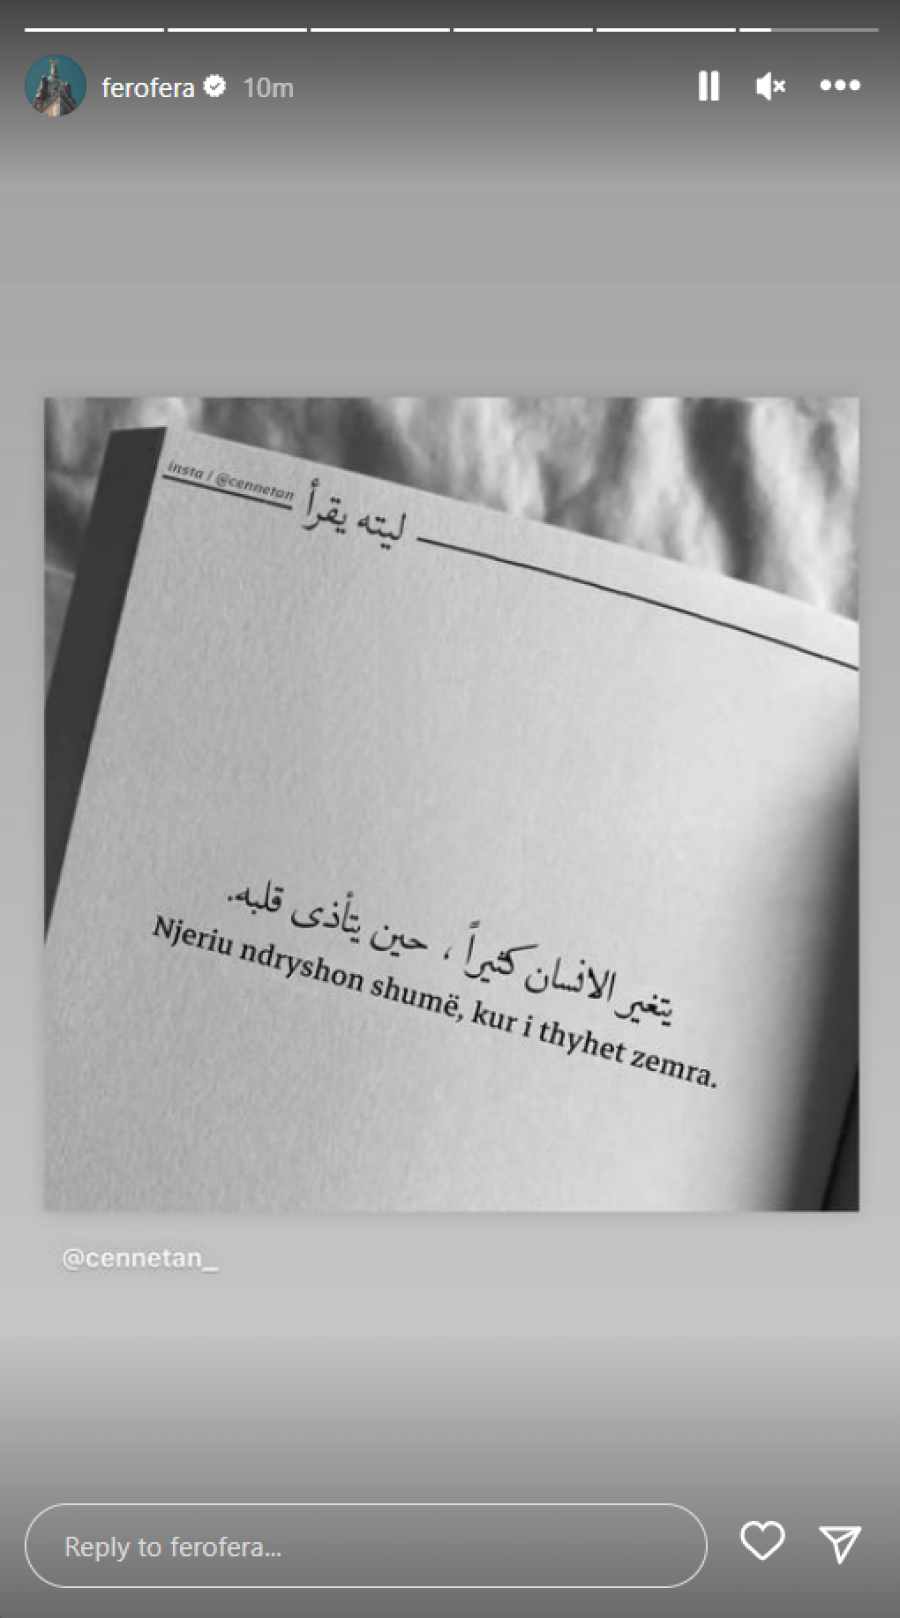 ferofera 10m
insta / @cennetan
ليته يقرأ
يتغير الانسان كثيراً ، حين يتأذى قلبه.
Njeriu ndryshon shumë, kur i thyhet zemra.
@cennetan_
Reply to ferofera...